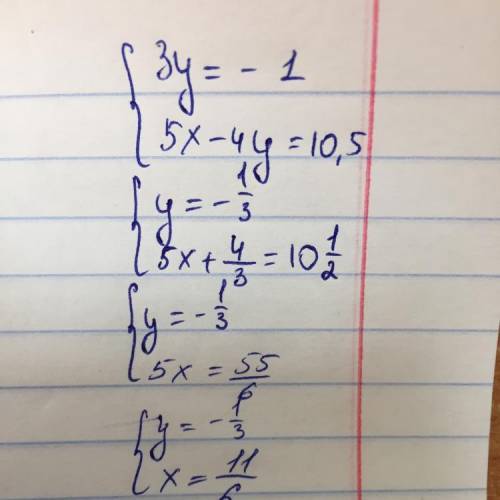 3y = - 1
5x - 4y = 10,5
y = - 1/3
5x + 4/3 = 10 1/2
y = - 1/3
5x = 55/6
y = - 1/3
x = 11/6